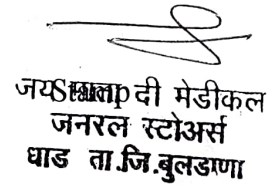 जय Stamp दी मेडीकल
जनरल स्टोअर्स
धाड ता.जि.बुलडाणा